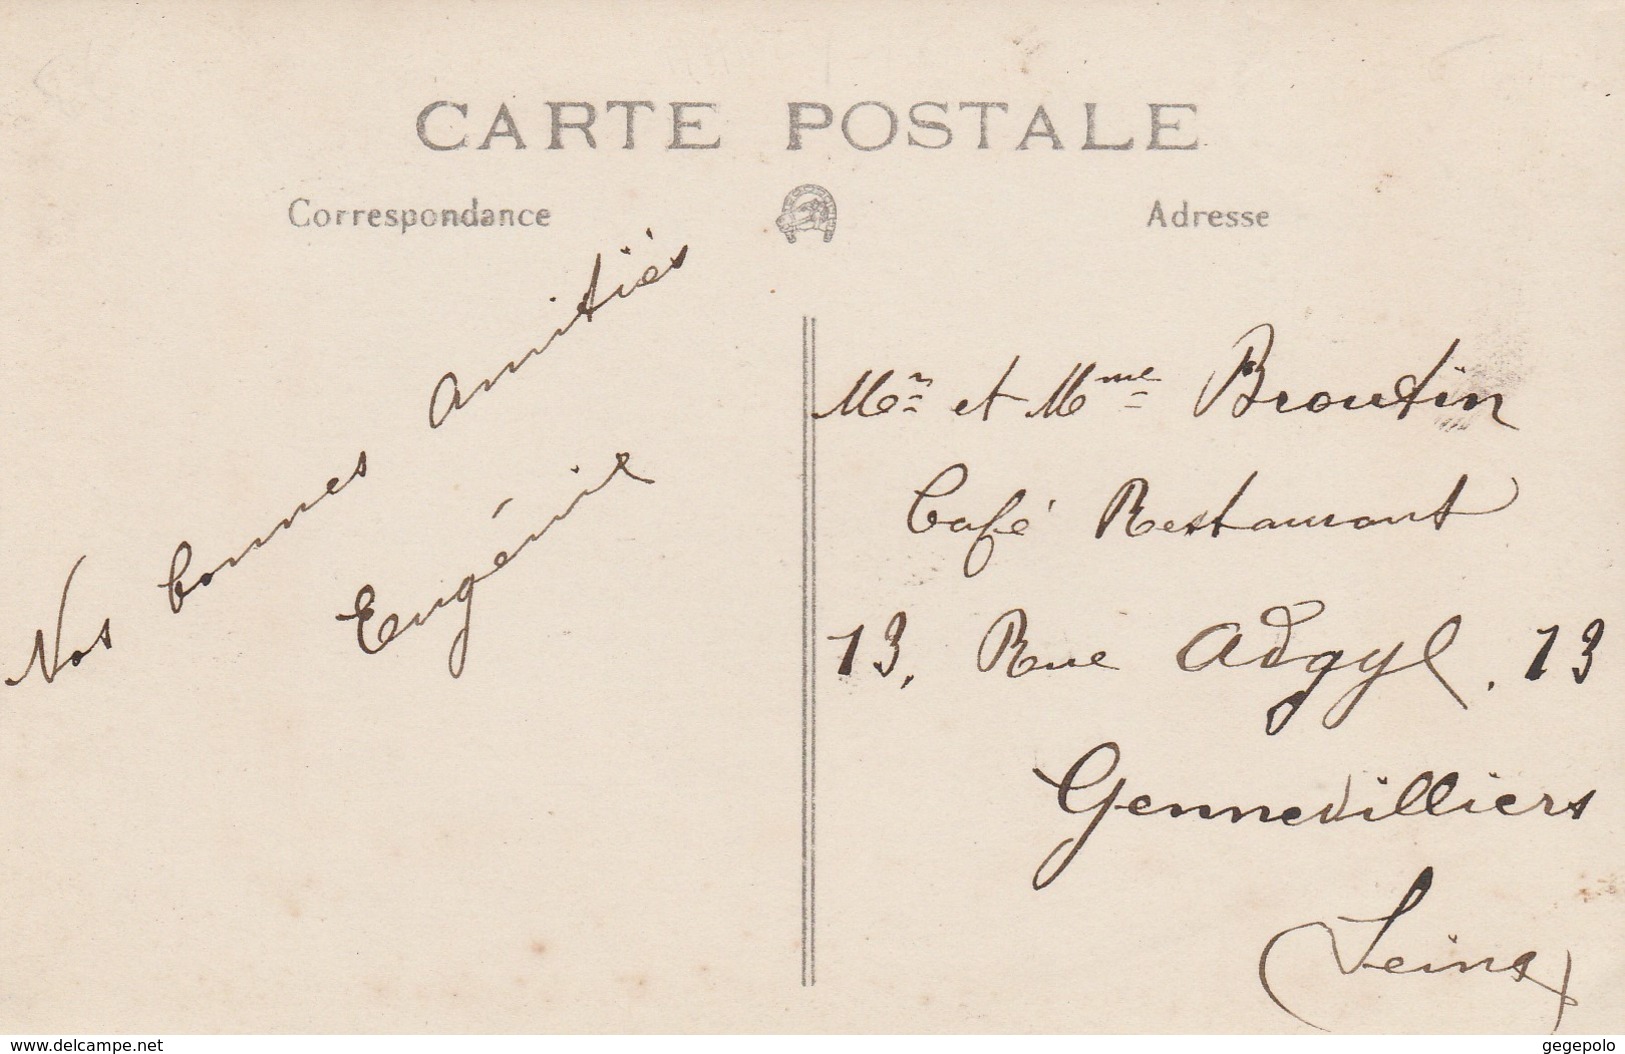 CARTE POSTALE
Correspondance
Adresse
Nos bonnes amitiés
Eugénie
Mr et Mme Broutin
Café Restaurant
13, Rue Adgyl. 13
Gennevilliers
(Seine)
www.delcampe.net
gegepolo